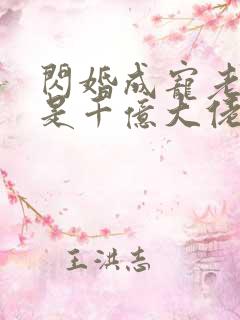 閃婚成寵老
是千億大佬
王洪志